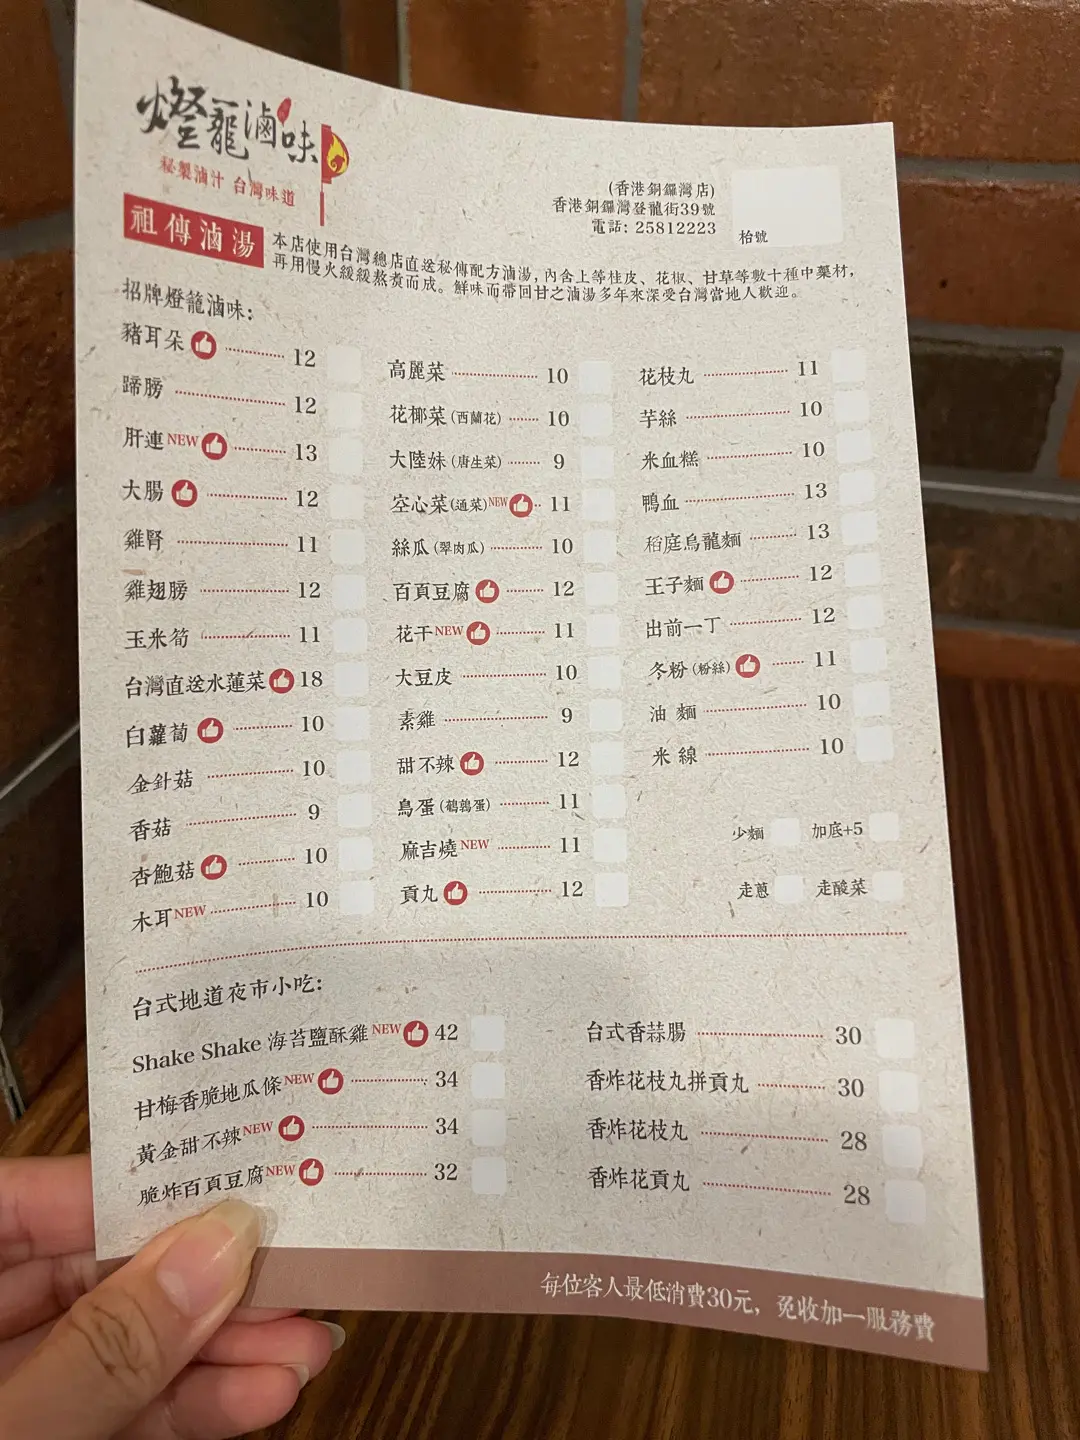 燈籠滷味
秘製滷汁 台灣味道
(香港銅鑼灣店)
香港銅鑼灣登龍街39號
電話: 25812223
枱號
祖傳滷湯
本店使用台灣總店直送秘傳配方滷湯, 內含上等桂皮、花椒、甘草等數十種中藥材,
再用慢火緩緩熬煮而成。鮮味而帶回甘之滷湯多年來深受台灣當地人歡迎。
招牌燈籠滷味:
豬耳朵 12
蹄膀 12
肝連NEW 13
大腸 12
雞腎 11
雞翅膀 12
玉米筍 11
台灣直送水蓮菜 18
白蘿蔔 10
金針菇 10
香菇 9
杏鮑菇 10
木耳NEW 10
高麗菜 10
花椰菜(西蘭花) 10
大陸妹(唐生菜) 9
空心菜(通菜)NEW 11
絲瓜(翠肉瓜) 10
百頁豆腐 12
花干NEW 11
大豆皮 10
素雞 9
甜不辣 12
鳥蛋(鵪鶉蛋) 11
麻吉燒NEW 11
貢丸 12
花枝丸 11
芋絲 10
米血糕 10
鴨血 13
稻庭烏龍麵 13
王子麵 12
出前一丁 12
冬粉(粉絲) 11
油麵 10
米線 10
少麵 加底+5
走蔥 走酸菜
台式地道夜市小吃:
Shake Shake 海苔鹽酥雞NEW 42
甘梅香脆地瓜條NEW 34
黃金甜不辣NEW 34
脆炸百頁豆腐NEW 32
台式香蒜腸 30
香炸花枝丸拼貢丸 30
香炸花枝丸 28
香炸花貢丸 28
每位客人最低消費30元, 免收加一服務費